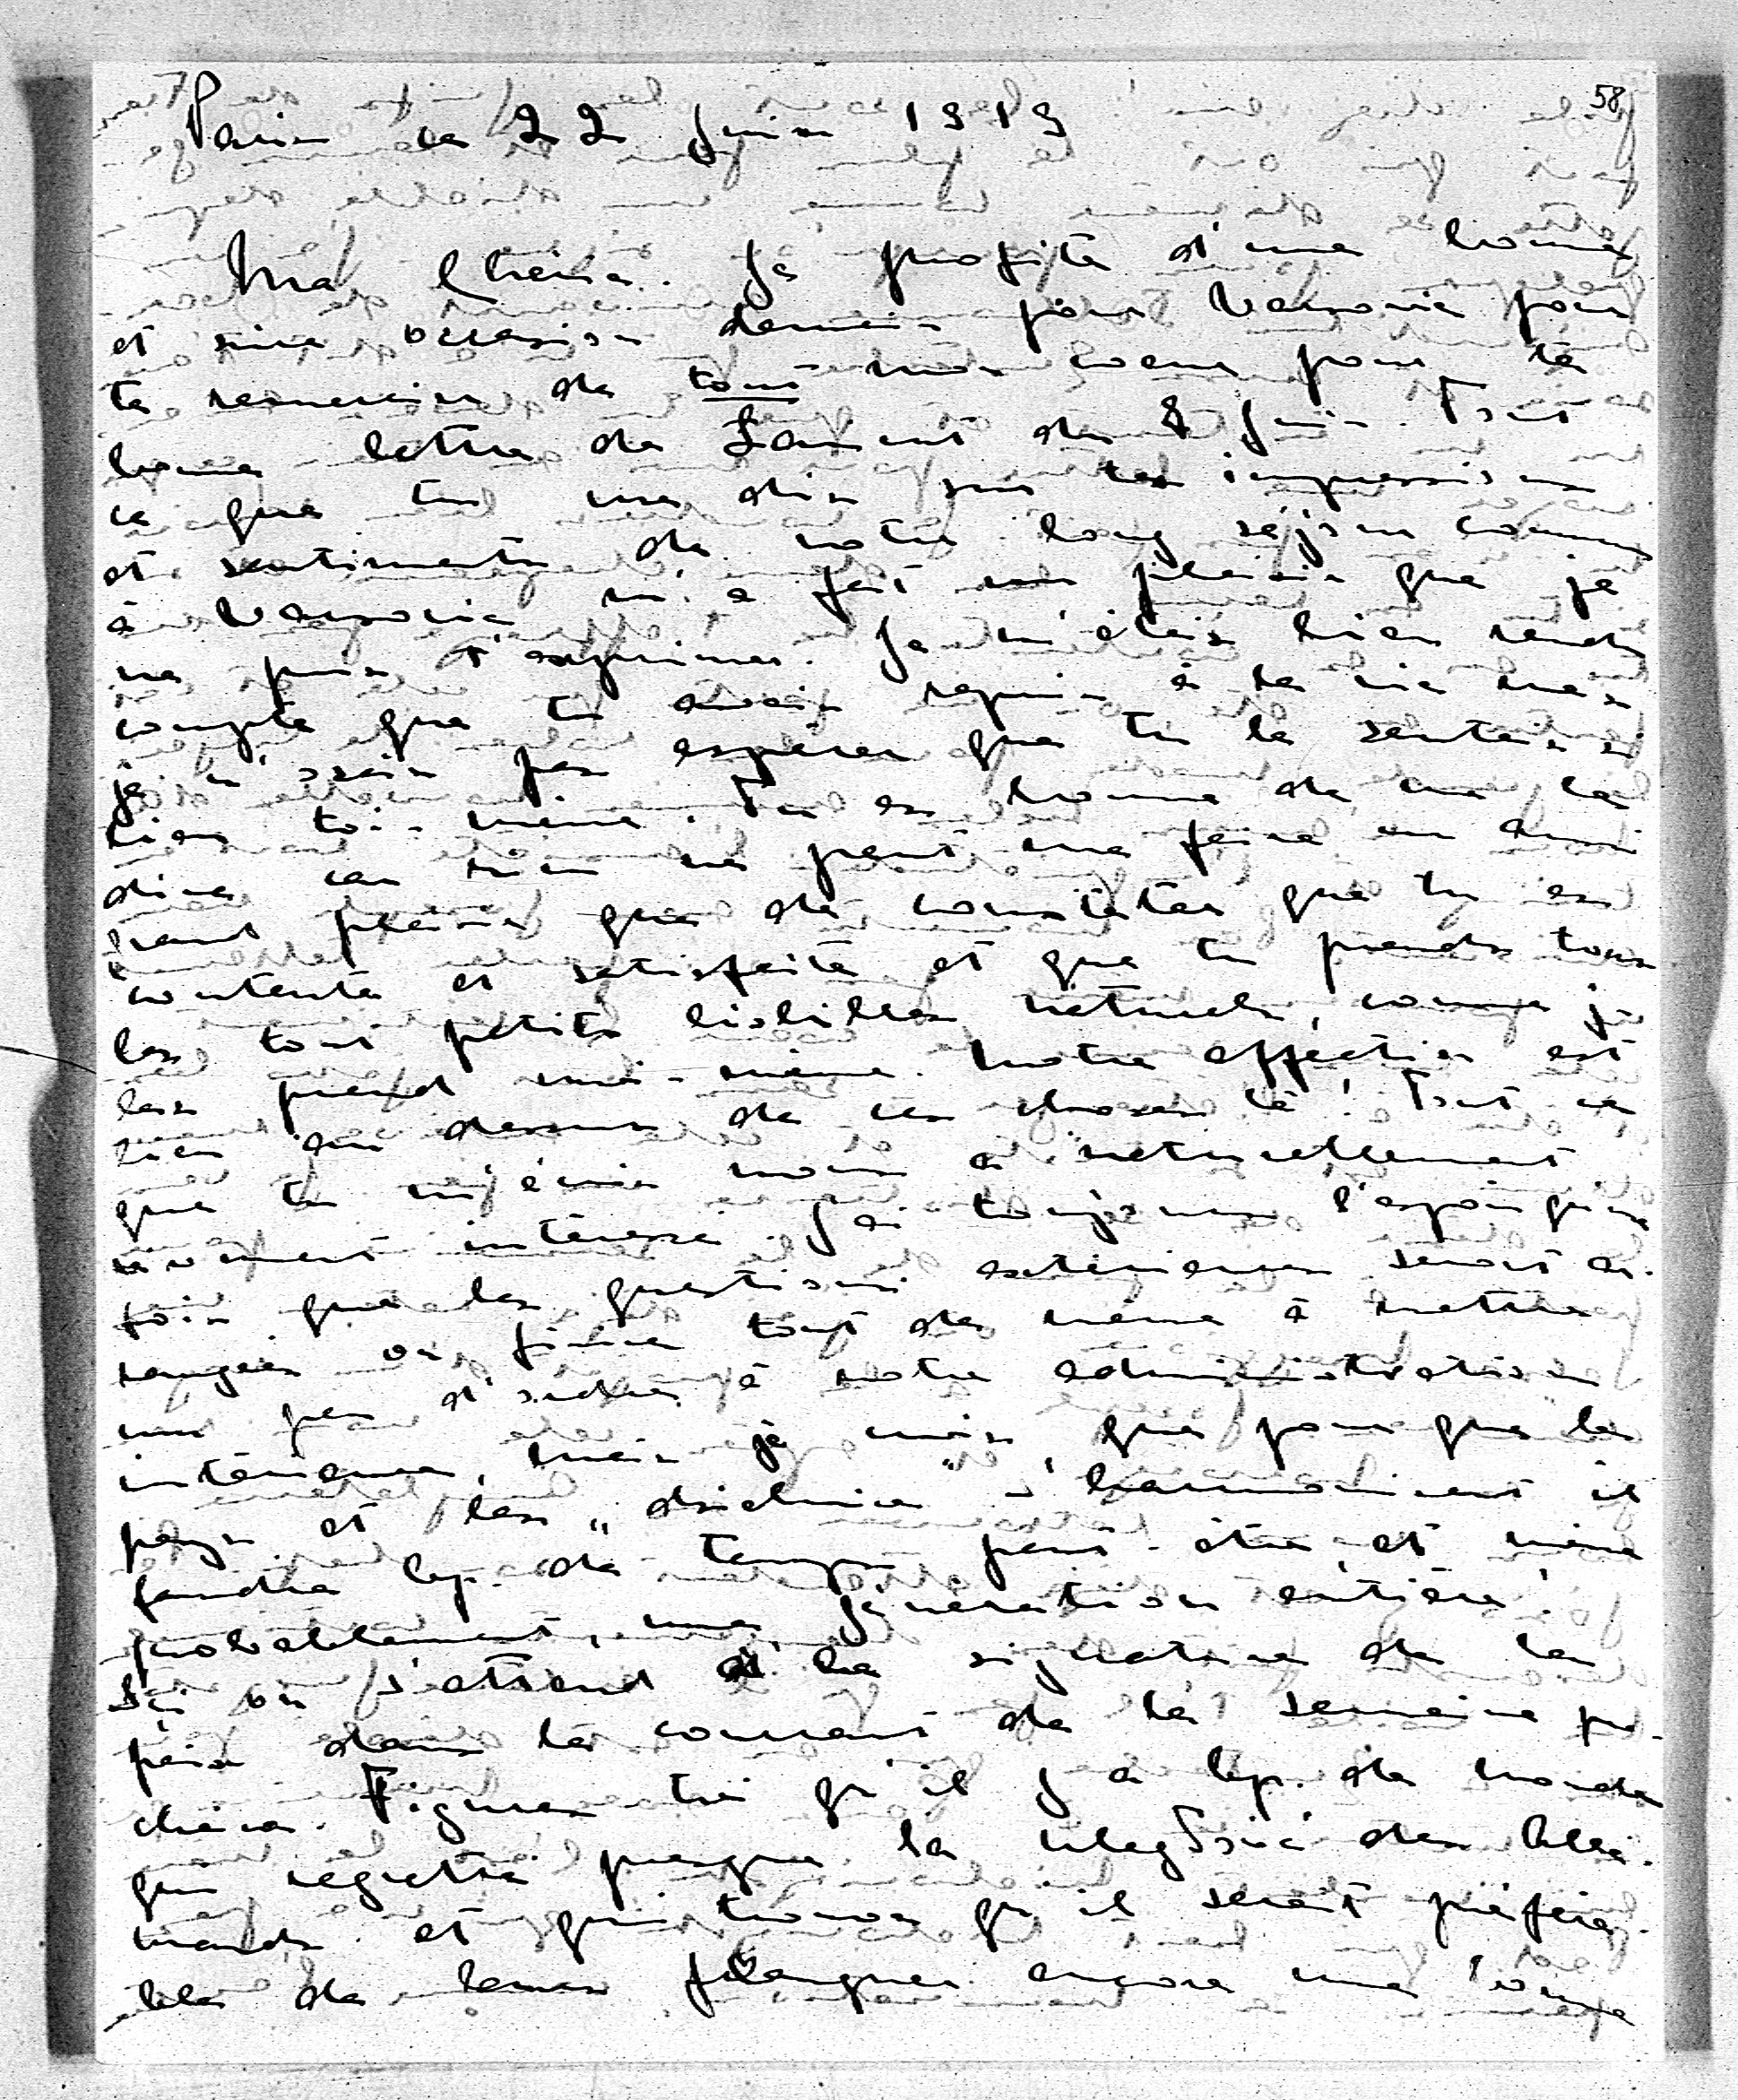 58
Paris le 22 Juin 1919
Ma Chérie. Je profite d'une bonne
et sûre occasion demain pour Varsovie pour
te remercier de tout mon coeur pour ta
bonne lettre de Łańcut du 8 Juin. Tout
ce que tu me dis sur tes impressions
et sentiments de notre long séjour commun
à Varsovie m'a fait un plaisir que je
ne puis t'exprimer. Je m'étais bien rendu
compte que tu avais repris à la vie mais
je n'osais pas espérer que tu le sentais si
bien toi-même. Tu es bonne de me le
dire car rien ne peut me faire un aussi
grand plaisir que de constater que tu es
contente et satisfaite et que tu prends tous
les tout petits bisbilles naturels, comme je
les prend moi-même. Notre affection est
bien au dessus de ces choses là! Tout ce
que tu m'écris nous a naturellement
vivement intéressé. J'ai toujours l'espoir qu'une
fois que les questions extérieures seront ar-
rangées on finira tout de même à mettre
un peu d'ordre à notre administration
intérieure, mais je crois, que pour que les
pays et les „dzielnice" s'harmonisent il
faudra bcp. de temps peut-être, et même
probablement, une génération entière!
Ici on s'attend à la signature de la
paix dans le courant de la semaine pro-
chaine. Figures toi qu'il y a bcp. de monde
qui regrette presque la uległość des Alle-
mands et qui trouve qu'il serait préféra-
ble de leur flanquer encore une bonne